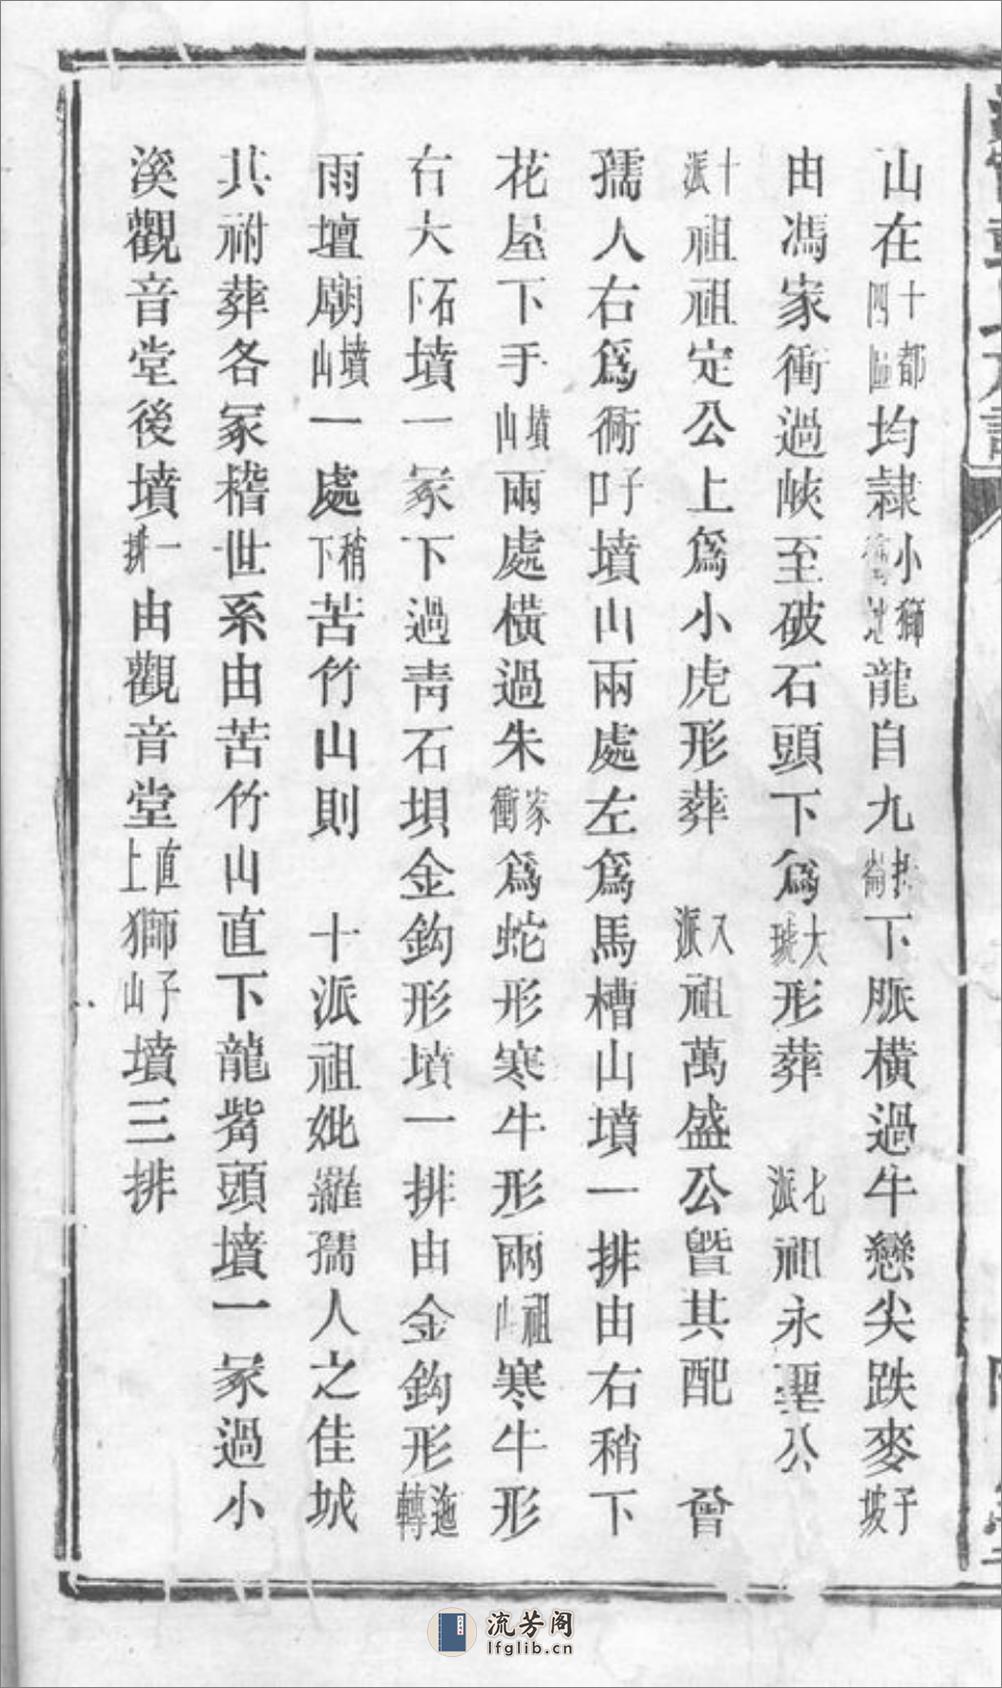 山在十都四區均隷小獅龍自九下脈橫過牛戀尖跌麥子坡
由馮家衝過峽至破石頭下爲大形葬　七派祖永聖公
十派祖祖定公上爲小虎形葬　又派祖萬盛公曁其配　曾
孺人右爲衕吇墳山兩處左爲馬槽山墳一排由右稍下
花屋下手墳山兩處橫過朱家衝爲蛇形寒牛形兩祖山寒牛形
右大石下墳一冡下過靑石垻金鈎形墳一排由金鈎形迤轉
雨壇廟墳山一處稍下苦竹山則　十派祖妣羅孺人之佳城
共祔葬各冡楷世系由苦竹山直下龍觜頭墳一冡過小
溪觀音堂後墳一排由觀音堂直上獅子山墳三排
流芳阁
lfglib.cn